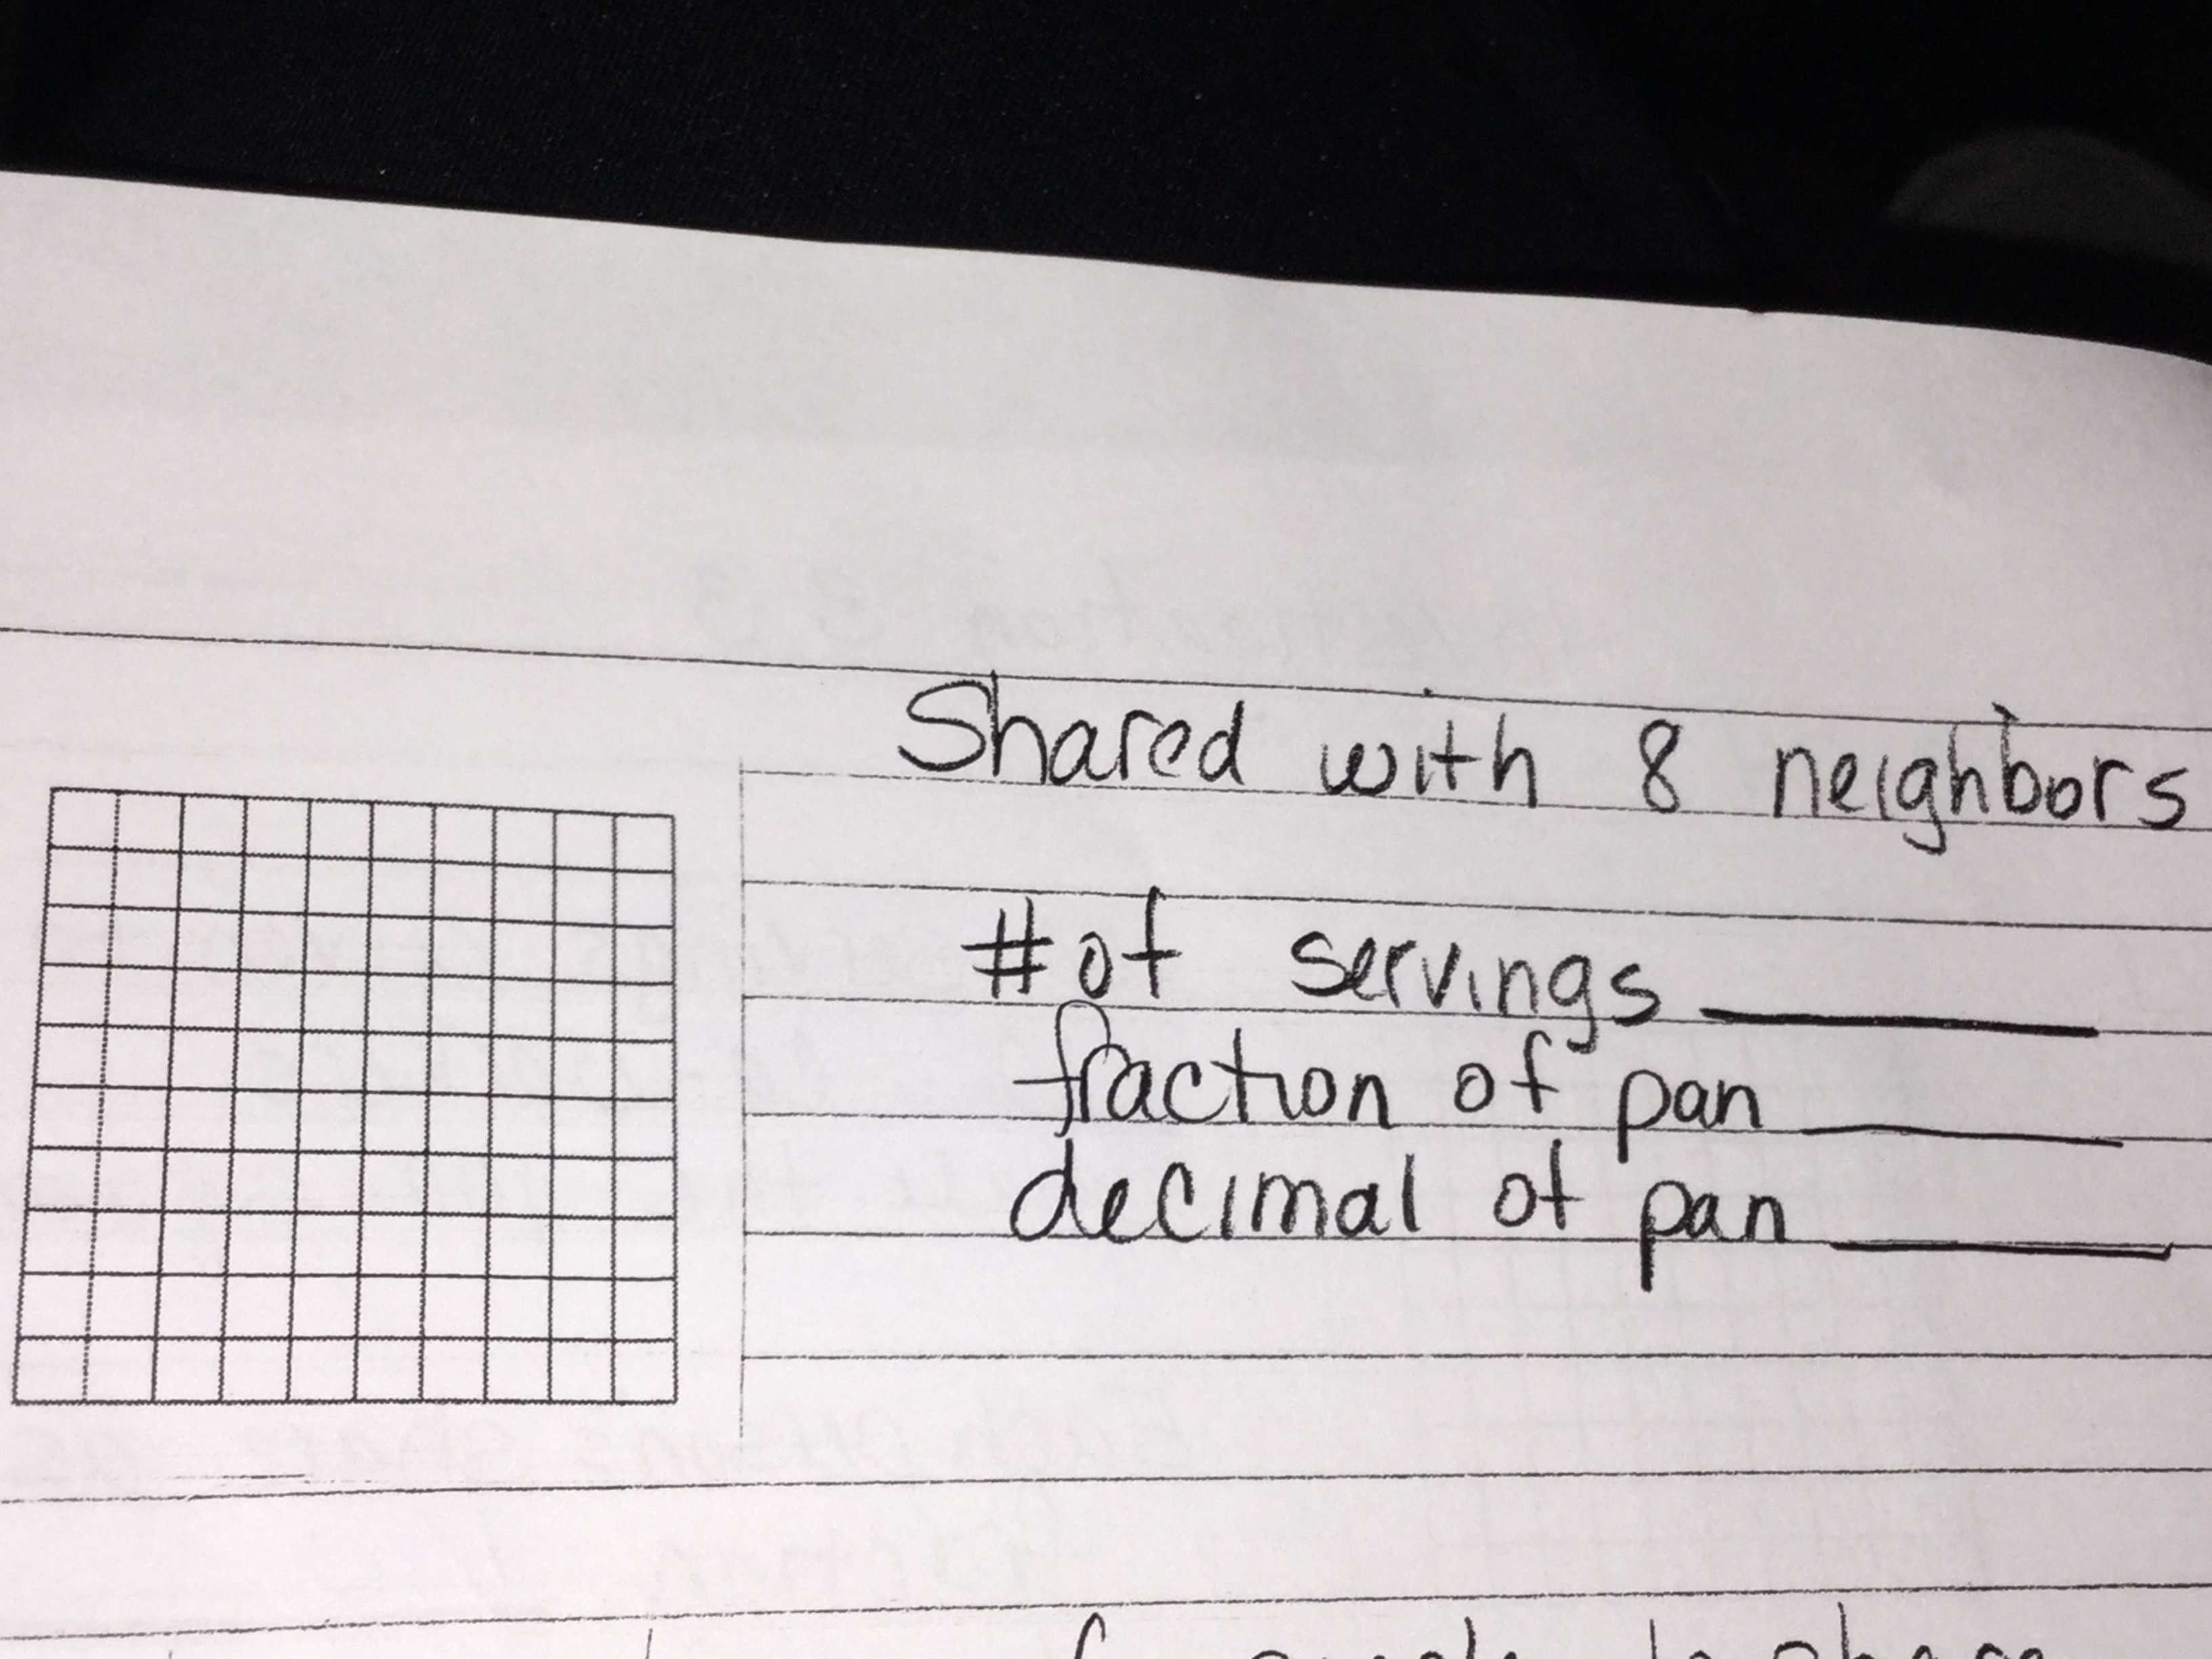 Shared with 8 neighbors
# of servings
fraction of pan
decimal of pan